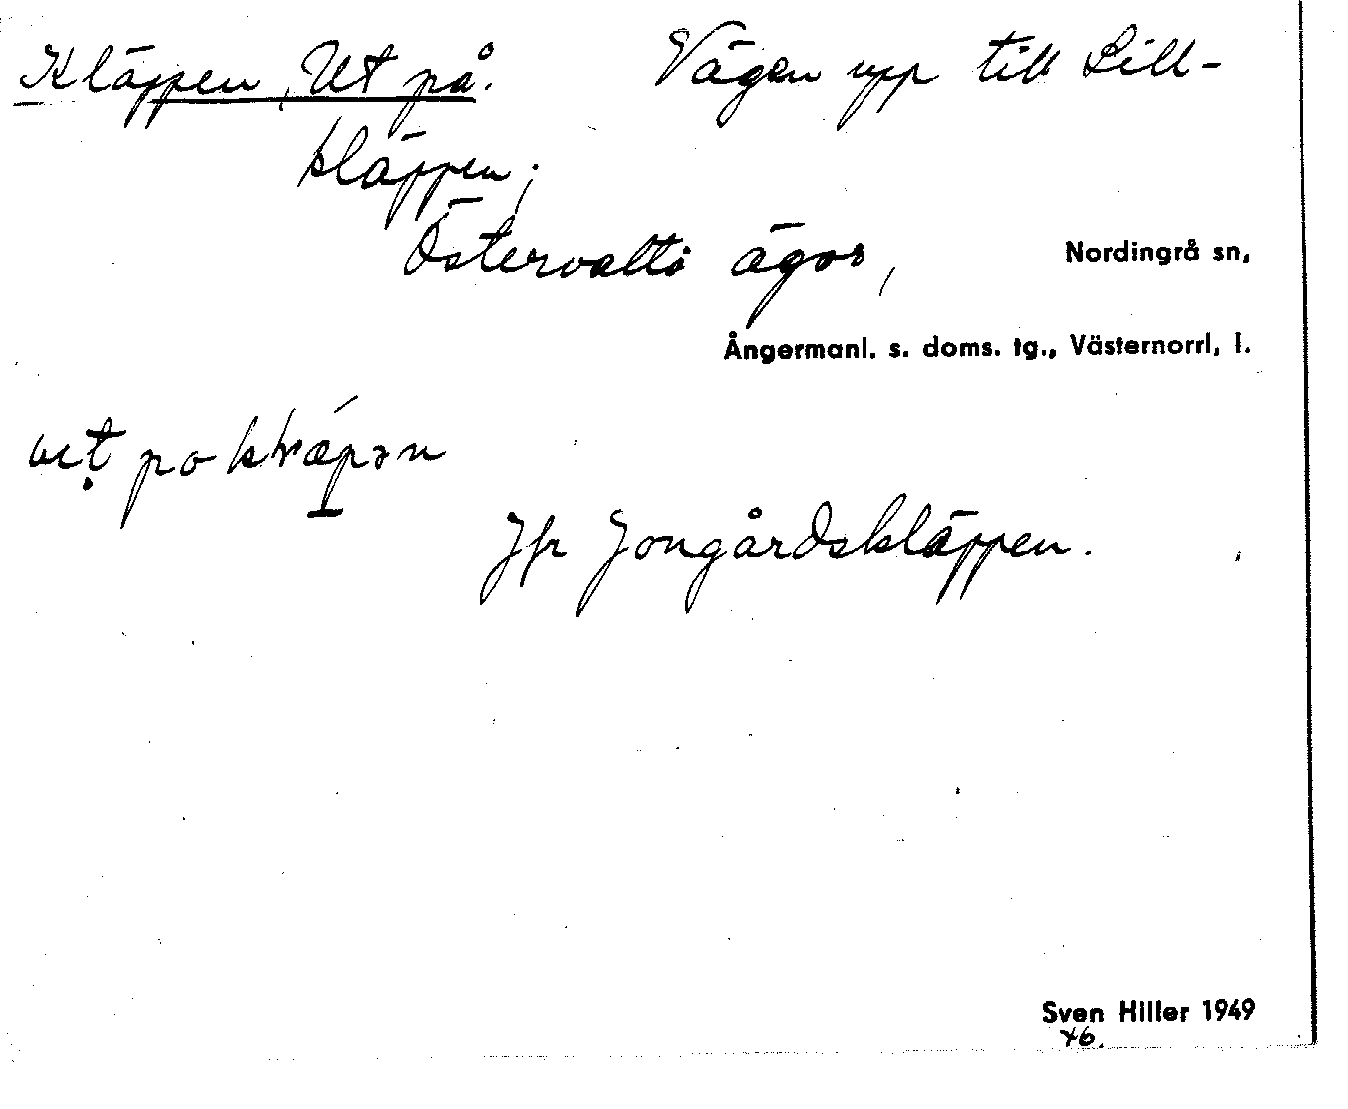 Kläppen, Ut på. Vägen upp till Lill-
kläppen;
Östervalto ägor, Nordingrå sn,
Ångermanl. s. doms. tg., Västernorrl. l.
po
Jfr Jongårdskläppen.
Sven Hiller 1949
46.